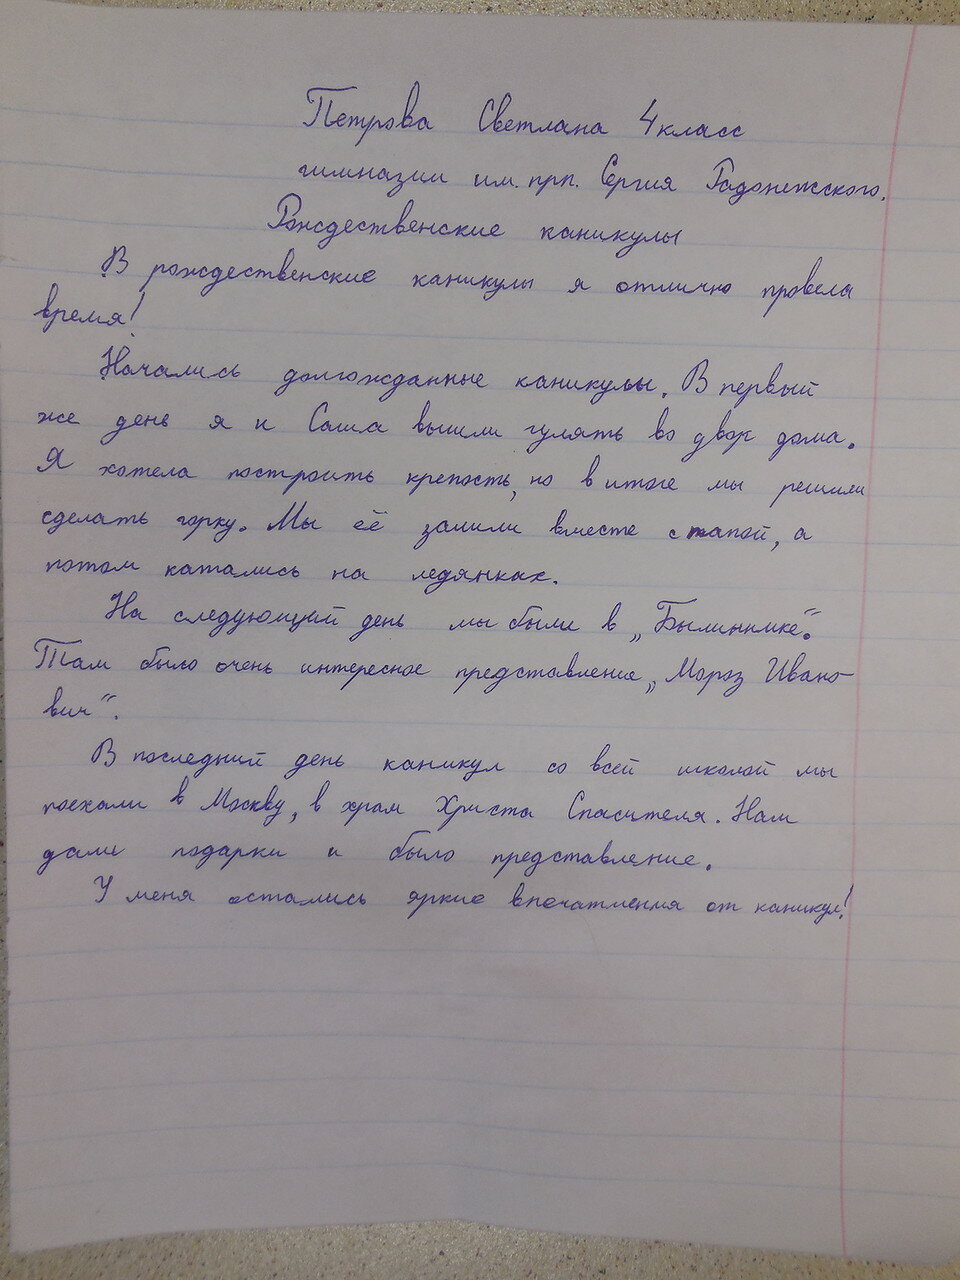 Петрова Светлана 4 класс
гимназии им. прп. Сергия Радонежского.
Рождественские каникулы
В рождественские каникулы я отлично провела
время!
Начались долгожданные каникулы. В первый
же день я и Саша вышли гулять во двор дома.
Я хотела построить крепость, но в итоге мы решили
сделать горку. Мы её залили вместе с папой, а
потом катались на ледянках.
На следующий день мы были в „Былиннике“.
Там было очень интересное представление „Мороз Ивано-
вич“.
В последний день каникул со всей школой мы
поехали в Москву, в храм Христа Спасителя. Нам
дали подарки и было представление.
У меня остались яркие впечатления от каникул!